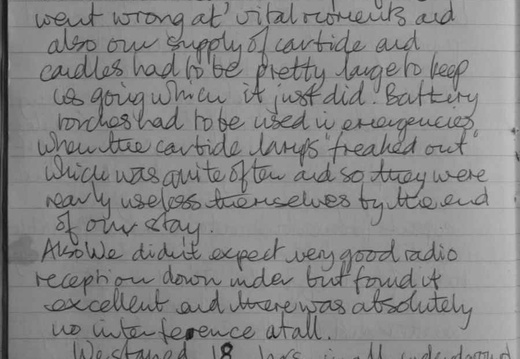 went wrong at' vital moments and
also our supply of carbide and
candles had to be pretty large to keep
us going which it just did. Battery
torches had to be used in emergencies
when the carbide lamps "freaked out"
which was quite often and so they were
nearly useless themselves by the end
of our stay.
Also We didn't expect very good radio
reception down under but found it
excellent and there was absolutely
no interference at all.
We stayed 18 hrs in all underground